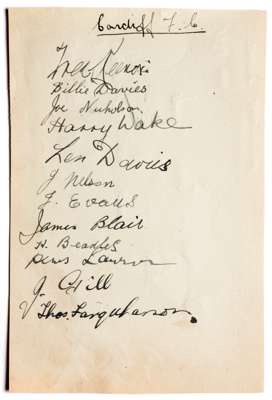 Cardiff F. C.
Fred Keenor
Billie Davies
Joe Nicholson
Harry Wake
Len Davies
J Nelson
H. Evans
James Blair
H. Beadles
Denis Lawson
J. Gill
Thos. Farquharson.